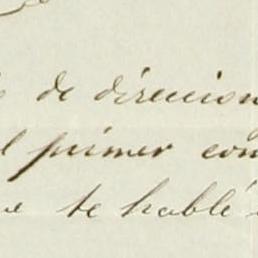 de direccion
el primer con
que te hablé